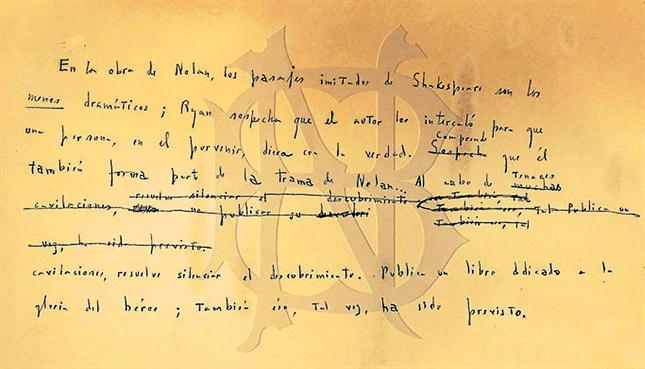 En la obra de Nolan, los pasajes imitados de Shakespeare son los
menos dramáticos; Ryan sospecha que el autor los intercaló para que
una persona, en el porvenir, diera con la verdad. Sospecha Comprende que él
también forma part de la trama de Nolan... Al cabo de muchas tenaces
cavilaciones, resuelve silenciar el descubrimiento no publicar su También eso, tal Publica un
También eso, tal
vez, ha sido previsto.
cavilaciones, resuelve silenciar el descubrimiento. Publica un libro ddicado a la
gloria del héroe; también eso, tal vez, ha sido previsto.